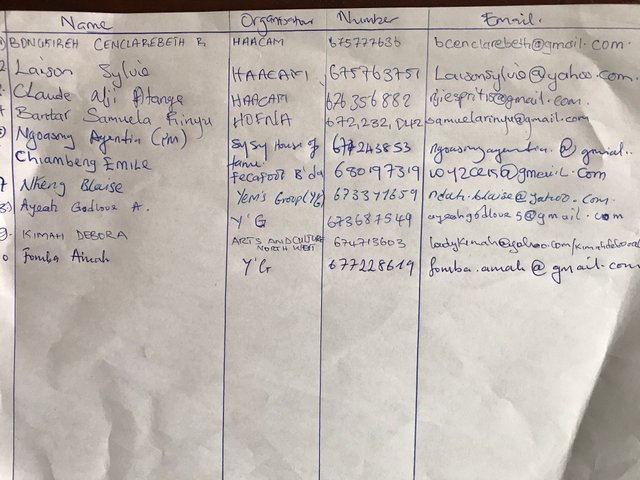 Name Organisation Number Email.
BONGFIREH CENCLAREBETH R. HAACAM 675777636 bcenclarebeth@gmail.com.
2 Laison Sylvie HAACAM 675763751 Laisonsylvie@yahoo.com.
Claude Aji Atanga HAACAM 676356882 @gmail.com.
4 Bantar Samuela Rinyu HOFNA 672,232, samuelarinyu@gmail.com
Ngoasong Agentia (im) Sysy House of fame. 677243853 ngoasongagentia.@gmail.
Chiambeng Emile Fecafoot B'da 630197319 @gmail.com
7 Nkeng Blaise Yem's Group(YG) 673371659 ndah.blaise@yahoo.com.
8) Ayeah Godlove A. Y'G 673687549 ayeahgodlove5@gmail.com
9. KIMAH DEBORA ARTS AND CULTURE NORTH WEST 674713603 ladykimah@yahoo.com/
0 Fomba Amah Y'G 677228619 fomba.amah@gmail.com